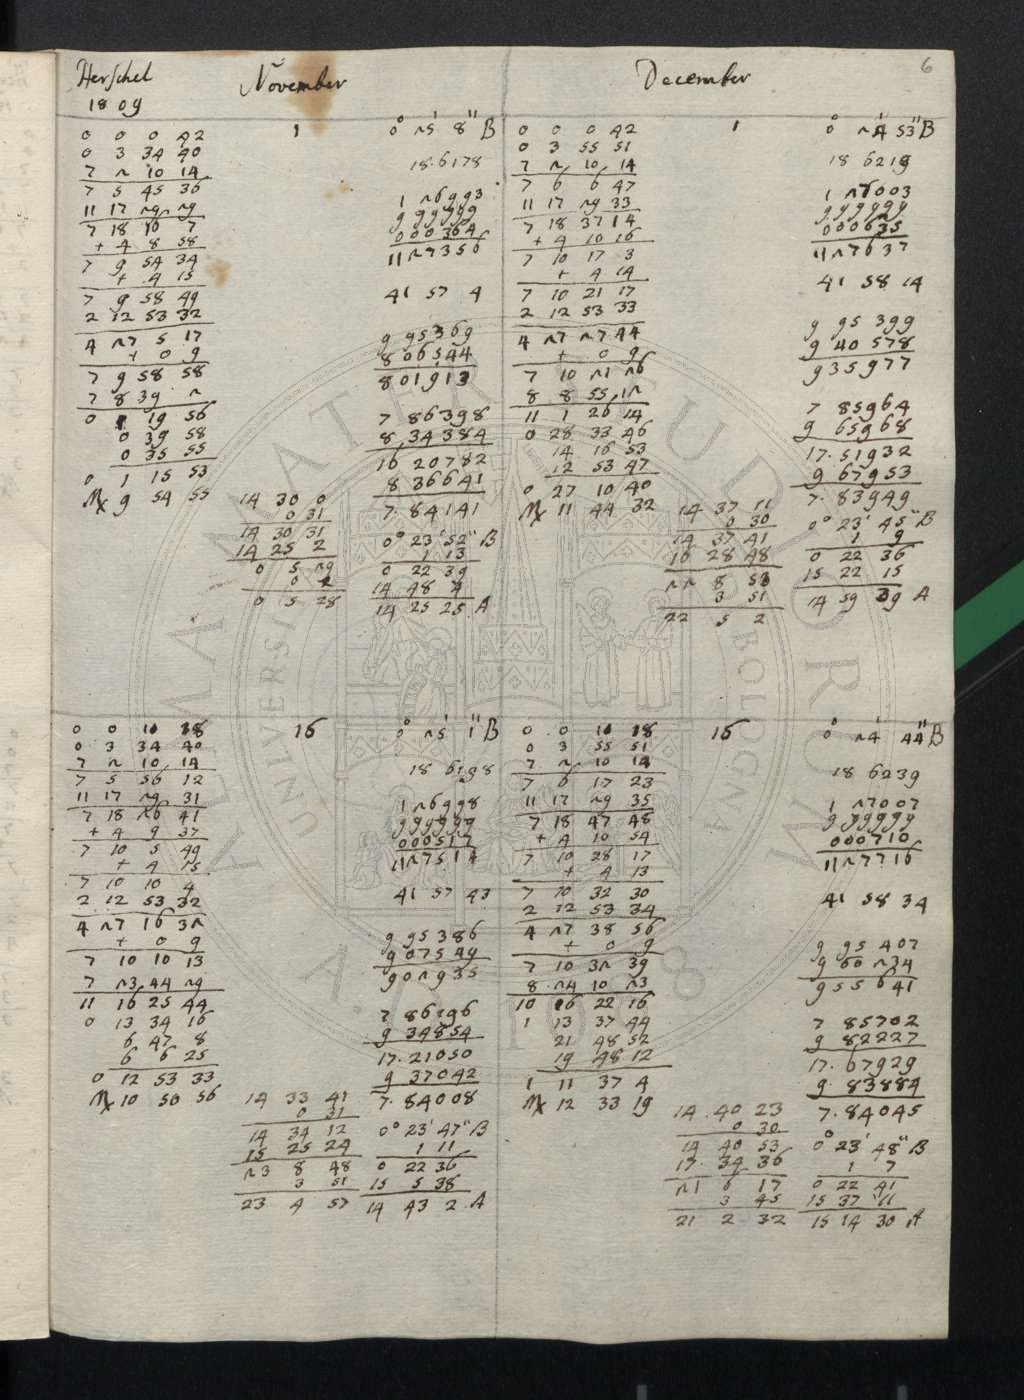 Herschel
1809
November
December
6
0 0 0 42
0 3 34 40
7 2 10 14
7 5 45 36
11 17 29 29
7 18 16 7
+ 4 8 58
7 9 54 34
+ 4 15
7 9 58 49
2 12 53 32
4 27 5 17
+ 0 9
7 9 58 58
7 8 39 2
0 1 19 56
0 39 58
0 35 55
0 1 15 53
♏ 9 54 55
1
14 30 0
0 31
14 30 31
14 25 2
0 5 29
0 5 28
0° 25' 8" B
18.6178
1 26993
9 99999
000364
1127356
41 57 4
9 95369
8 06544
8 01913
7 86398
8 34384
16 20782
8 36641
7.84141
0° 23' 52" B
1 13
0 22 39
14 48 4
14 25 25 A
0 0 0 42
0 3 55 51
7 2 10 14
7 6 6 47
11 17 29 33
7 18 37 14
+ 4 10 16
7 10 17 3
+ 4 14
7 10 21 17
2 12 53 33
4 27 27 44
+ 0 9
7 10 21 26
8 8 55 12
11 1 26 14
0 28 33 46
14 16 53
12 53 47
0 27 10 40
♏ 11 44 32
1
14 37 11
0 30
14 37 41
16 28 48
22 8 53
3 51
22 5 2
0° 24' 53" B
18 6219
1 27003
9 99999
000635
1127637
41 58 14
9 95 399
9 40 578
9 35977
7 85964
9 65968
17.51932
9 67953
7.83949
0° 23' 45" B
1 9
0 22 36
15 22 15
14 59 39 A
0 0 11 18
0 3 34 40
7 2 10 14
7 5 56 12
11 17 29 31
7 18 26 41
+ 4 9 37
7 10 5 49
+ 4 15
7 10 10 4
2 12 53 32
4 27 16 32
+ 0 9
7 10 10 13
7 23 44 29
11 16 25 44
0 13 34 16
6 47 8
6 6 25
0 12 53 33
♏ 10 50 56
16
14 33 41
0 31
14 34 12
15 25 24
23 8 48
3 51
23 4 57
0° 25' 1" B
18 6198
1 26998
9 99999
000517
1127514
41 57 43
9 95386
9 07549
9 02935
7 86196
9 34854
17.21050
9 37042
7.84008
0° 23' 47" B
1 11
0 22 36
15 5 38
14 43 2 A
0 0 11 18
0 3 55 51
7 2 10 14
7 6 17 23
11 17 29 35
7 18 47 48
+ 4 10 54
7 10 28 17
+ 4 13
7 10 32 30
2 12 53 34
4 27 38 56
+ 0 9
7 10 32 39
8 24 10 23
10 16 22 16
1 13 37 44
21 48 52
19 48 12
1 11 37 4
♏ 12 33 19
16
14 40 23
0 30
14 40 53
17.34 36
21 6 17
3 45
21 2 32
0° 24' 44" B
18 6239
1 27007
9 99999
000710
1127716
41 58 34
9 95 407
9 60 234
9 55 641
7 85702
9 82227
17.67929
9.83884
7.84045
0° 23' 48" B
1 7
0 22 41
15 37 11
15 14 30 A
ALMA MATER STUDIORUM
UNIVERSITÀ DI BOLOGNA
A.D. 1088